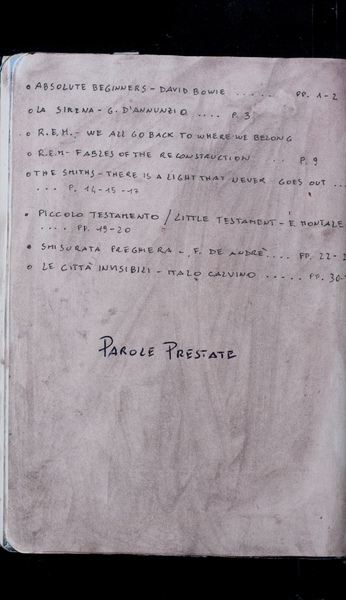 • ABSOLUTE BEGINNERS - DAVID BOWIE ...... PP. 1-2
• LA SIRENA - G. D'ANNUNZIO .... P. 3
• R.E.M. - WE ALL GO BACK TO WHERE WE BELONG
• R.E.M - FABLES OF THE RECONSTRUCTION .. P. 9
• THE SMITHS - THERE IS A LIGHT THAT NEVER GOES OUT ...
... P. 14-15-17
• PICCOLO TESTAMENTO / LITTLE TESTAMENT - E MONTALE
.... PP. 19-20
• SMISURATA PREGHIERA - F. DE ANDRÈ .... PP. 22-
• LE CITTÀ INVISIBILI - ITALO CALVINO ..... PP. 30-
PAROLE PRESTATE